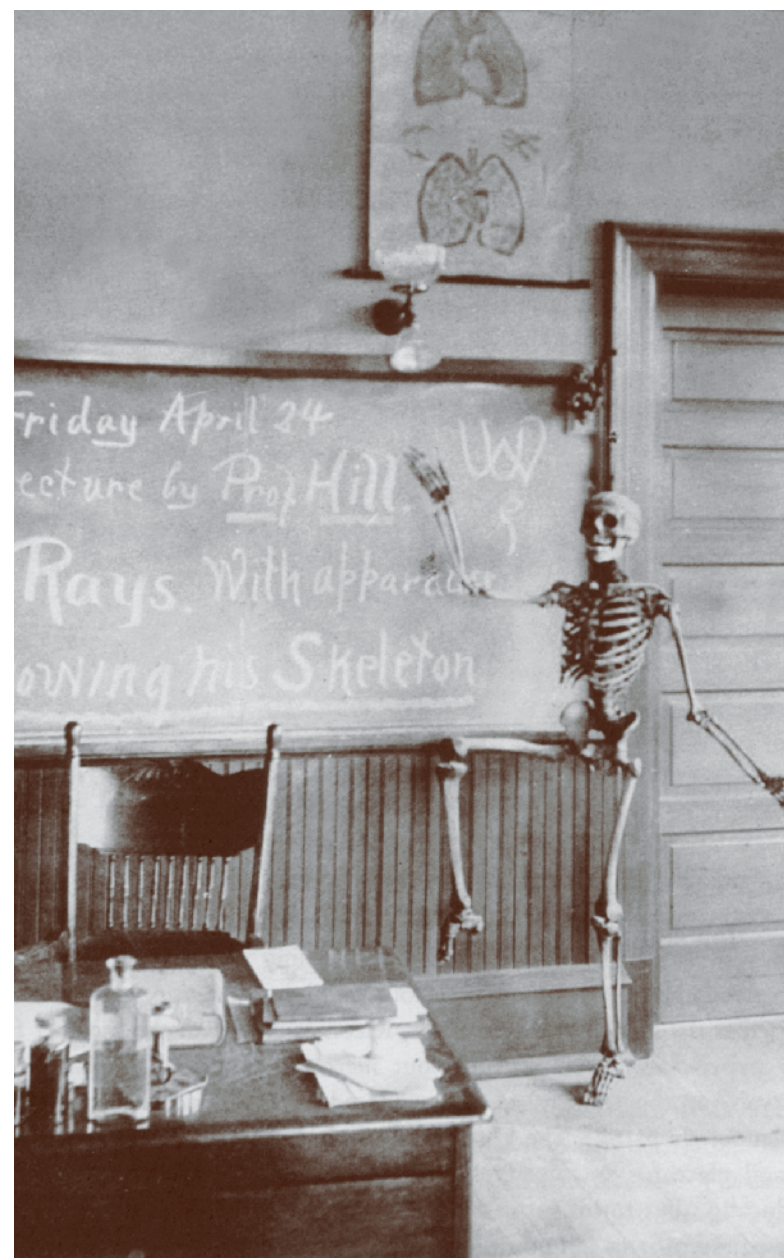 Friday April 24
ecture by Prof Hill.
Rays. With apparatus
owing his Skeleton